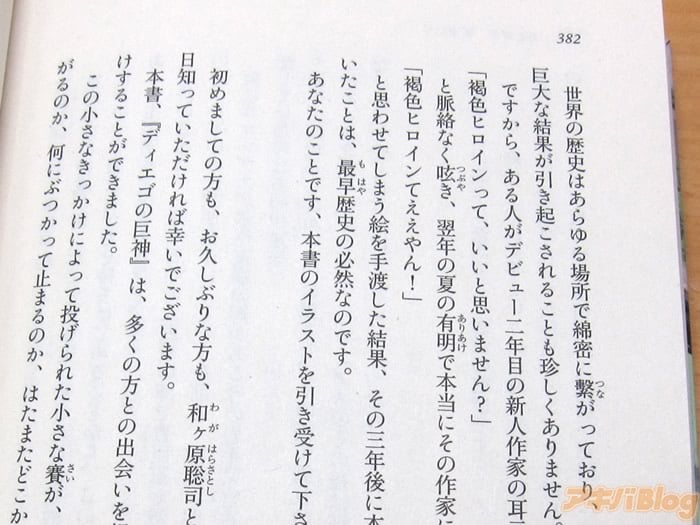 382
世界の歴史はあらゆる場所で綿密に繫がっており、
巨大な結果が引き起こされることも珍しくありません。
ですから、ある人がデビュー二年目の新人作家の耳元
「褐色ヒロインって、いいと思いません？」
と脈絡なく呟き、翌年の夏の有明で本当にその作家に
「褐色ヒロインてええやん！」
と思わせてしまう絵を手渡した結果、その三年後に本
いたことは、最早歴史の必然なのです。
あなたのことです、本書のイラストを引き受けて下さ
初めましての方も、お久しぶりな方も、和ヶ原聡司と
日知っていただければ幸いでございます。
本書、『ディエゴの巨神』は、多くの方との出会いを
けすることができました。
この小さなきっかけによって投げられた小さな賽が、
がるのか、何にぶつかって止まるのか、はたまたどこか
アキバBlog